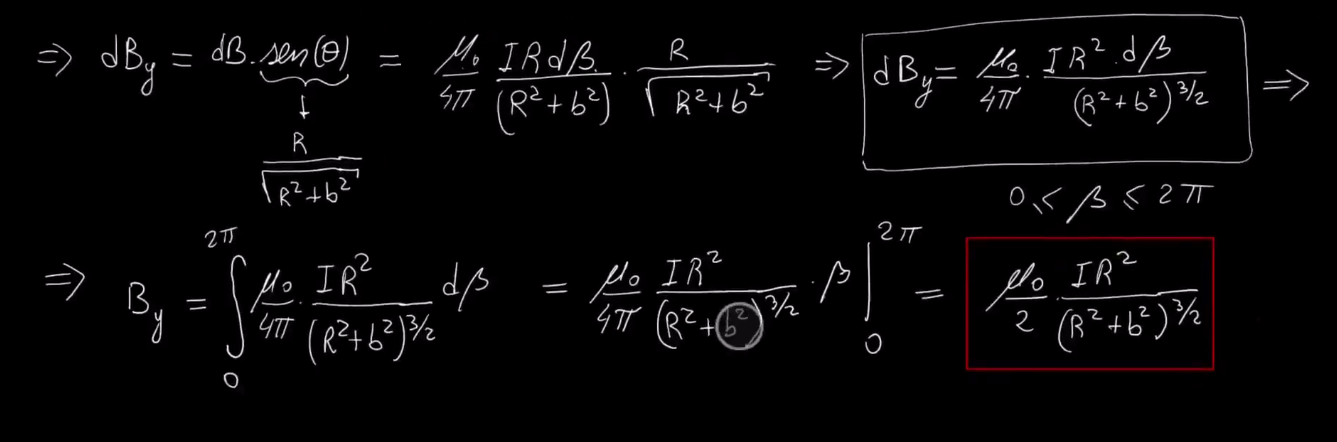 ⇒ dB_y = dB·sen(θ) = μ₀/4π · IRdβ/(R²+b²) · R/√(R²+b²) ⇒ dB_y = μ₀/4π · IR²·dβ/(R²+b²)^(3/2) ⇒
↓
R/√(R²+b²)
0 ≤ β ≤ 2π
⇒ B_y = ∫₀^(2π) μ₀/4π · IR²/(R²+b²)^(3/2) dβ = μ₀/4π · IR²/(R²+b²)^(3/2) · β |₀^(2π) = μ₀/2 · IR²/(R²+b²)^(3/2)